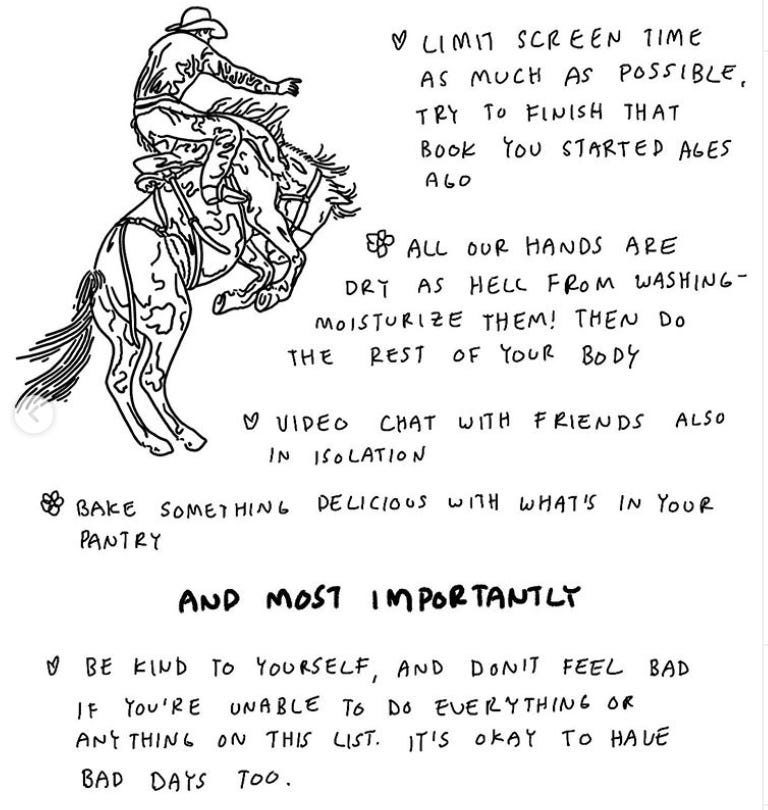 LIMIT SCREEN TIME
AS MUCH AS POSSIBLE.
TRY TO FINISH THAT
BOOK YOU STARTED AGES
AGO
ALL OUR HANDS ARE
DRY AS HELL FROM WASHING-
MOISTURIZE THEM! THEN DO
THE REST OF YOUR BODY
VIDEO CHAT WITH FRIENDS ALSO
IN ISOLATION
BAKE SOMETHING DELICIOUS WITH WHAT'S IN YOUR
PANTRY
AND MOST IMPORTANTLY
BE KIND TO YOURSELF, AND DON'T FEEL BAD
IF YOU'RE UNABLE TO DO EVERYTHING OR
ANYTHING ON THIS LIST. IT'S OKAY TO HAVE
BAD DAYS TOO.